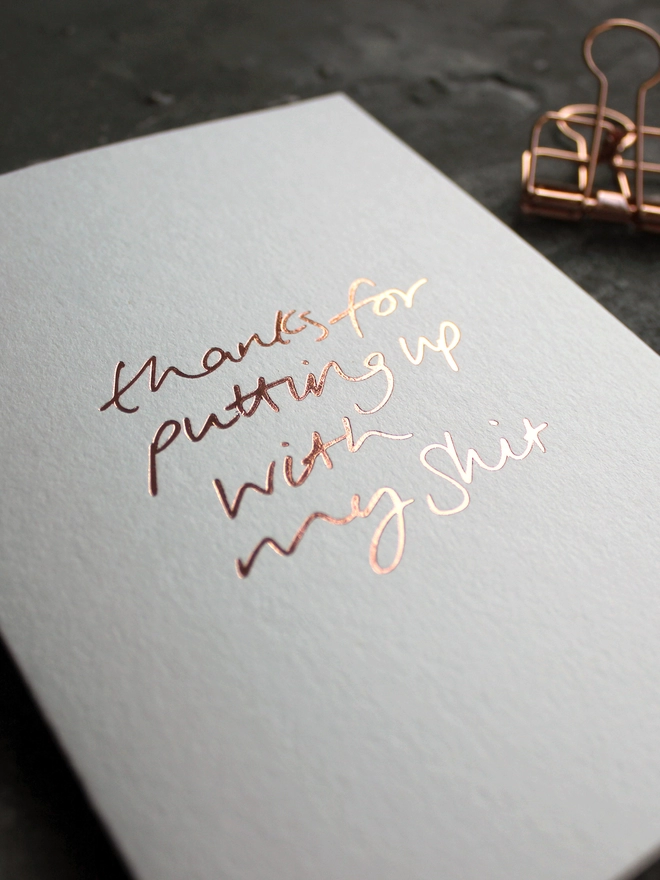 thanks for
putting up
with
my Shit